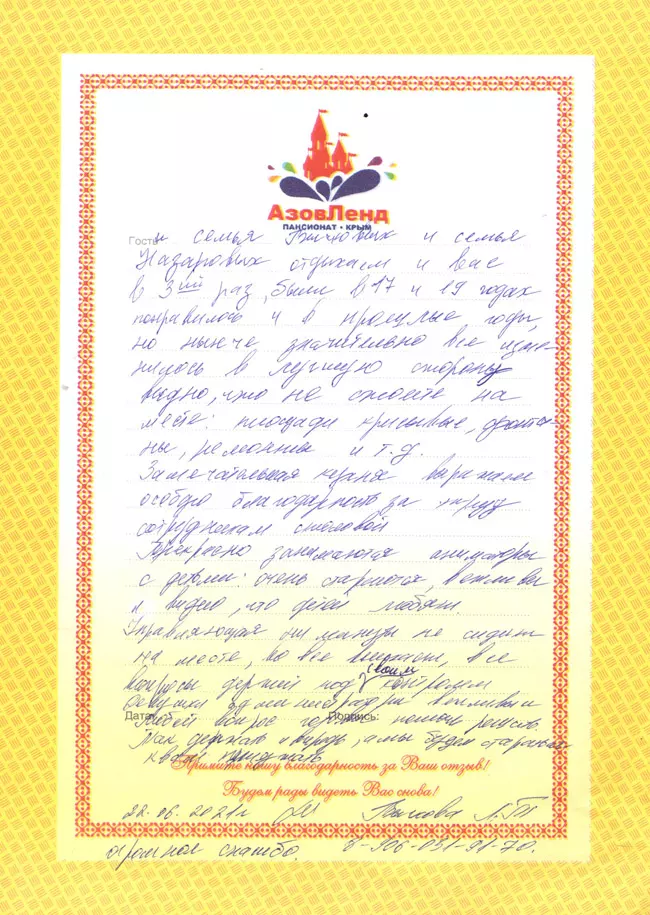 АзовЛенд
ПАНСИОНАТ • КРЫМ
Гость:
и семья и семья
Назаровых отдыхаем и вас
в 3ий раз, были в 17 и 19 годах
понравилось и в прошлые годы,
но нынче значительно все изме-
нилось в лучшую сторону
видно, что не стоите на
месте: площади красивые, фонта-
ны, ремонты и т.д.
Замечательная кухня выражаем
особую благодарность за
сотрудникам столовой
Прекрасно занимаются аниматоры
с детьми: очень стараются, вежливы
и видно, что детей любят.
Управляющая ни минуты не сидит
на месте, во все вникает, все
вопросы держит под своим контролем
Девушки администраторы вежливы и
Дата: Подпись:
любой вопрос готовы решить.
Так держать и впредь, а мы будем стараться
к вам приезжать
Примите нашу благодарность за Ваш отзыв!
Будем рады видеть Вас снова!
22.06.2021г Л.Т
огромное спасибо. 8-906-031-91-70.